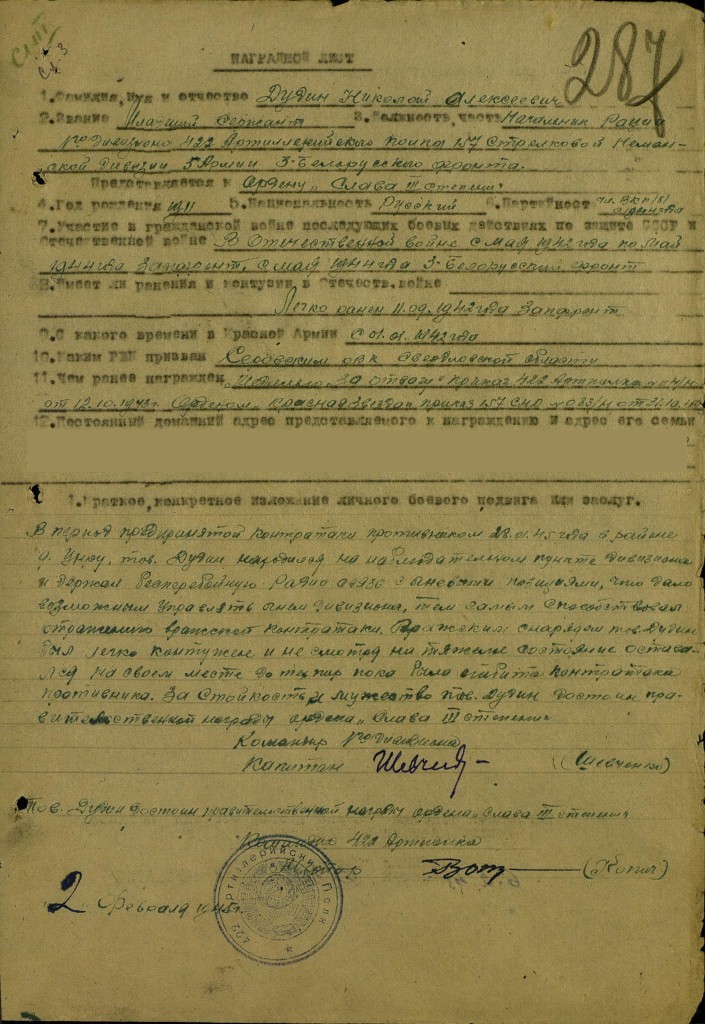 287
НАГРАДНОЙ ЛИСТ
1. Фамилия, имя и отчество Дудин Николай Алексеевич
2. Звание Младший Сержант 3. Должность, часть Начальник Рации
1го Дивизиона 422 Артиллерийского полка 157 Стрелковой Неман-
ской дивизии 5 Армии 3-Белорусского Фронта.
Представляется к Ордену „Слава III степени"
4. Год рождения 1911 5. Национальность Русский 6. Партийност чл. ВКП/б/
7. Участие в гражданской войне последующих боевых действиях по защите СССР и
Отечественной войне В Отечественной войне с мая 1942 года по май
1944 года Запфронт, с мая 1944 года 3-Белорусский фронт
8. Имеет ли ранения и контузии в Отечеств. войне
Легко ранен 11.09.1942 года Запфронт
9. С какого времени в Красной Армии с 01.01.1942 года
10. Каким РВК призван Серовским ОВК Свердловской области
11. Чем ранее награжден Медалью „За отвагу" приказ 422 Артполка
от 12.10.1943г. Орденом „Красная Звезда" приказ 157 №083/н от
12. Постоянный домашний адрес представляемого к награждению и адрес его семьи
1. Краткое, конкретное изложение личного боевого подвига или заслуг.
В период предпринятой контратаки противником 28.01.45 года в районе
тов. Дудин находился на наблюдательном пункте дивизиона
и держал бесперебойную радио связь с огневыми позициями, что дало
возможным управлять огнем дивизиона, тем самым способствовал
отражению вражеской контратаки. Вражеским снарядом тов. Дудин
был легко контужен и не смотря на тяжелое состояние остава-
лся на своем месте до тех пор пока была отбита контратака
противника. За стойкость и мужество тов. Дудин достоин пра-
вительственной награды ордена „Слава III степени"
Командир 1го дивизиона
Капитан (Шевченко)
Тов. Дудин достоин правительственной награды ордена „Слава III степени"
Командир 422 Артполка
Майор (Копич)
422 Артиллерийский Полк
„2" Февраля 1945г.